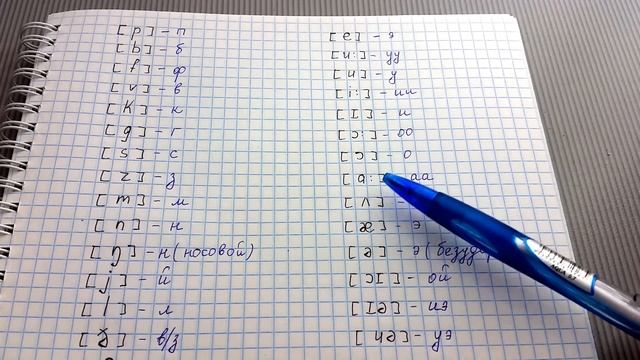 [p] - п
[b] - б
[f] - ф
[v] - в
[k] - к
[g] - г
[s] - с
[z] - з
[m] - м
[n] - н
[ŋ] - н (носовой)
[j] - й
[l] - л
[ð] - в/з
[e] - э
[u:] - уу
[u] - у
[i:] - ии
[I] - и
[ɔ:] - оо
[ɔ] - о
[a:] - аа
[ʌ] -
[æ] - э
[ə] - э
[ɔI] - ой
[Iə] - иэ
[uə] - уэ